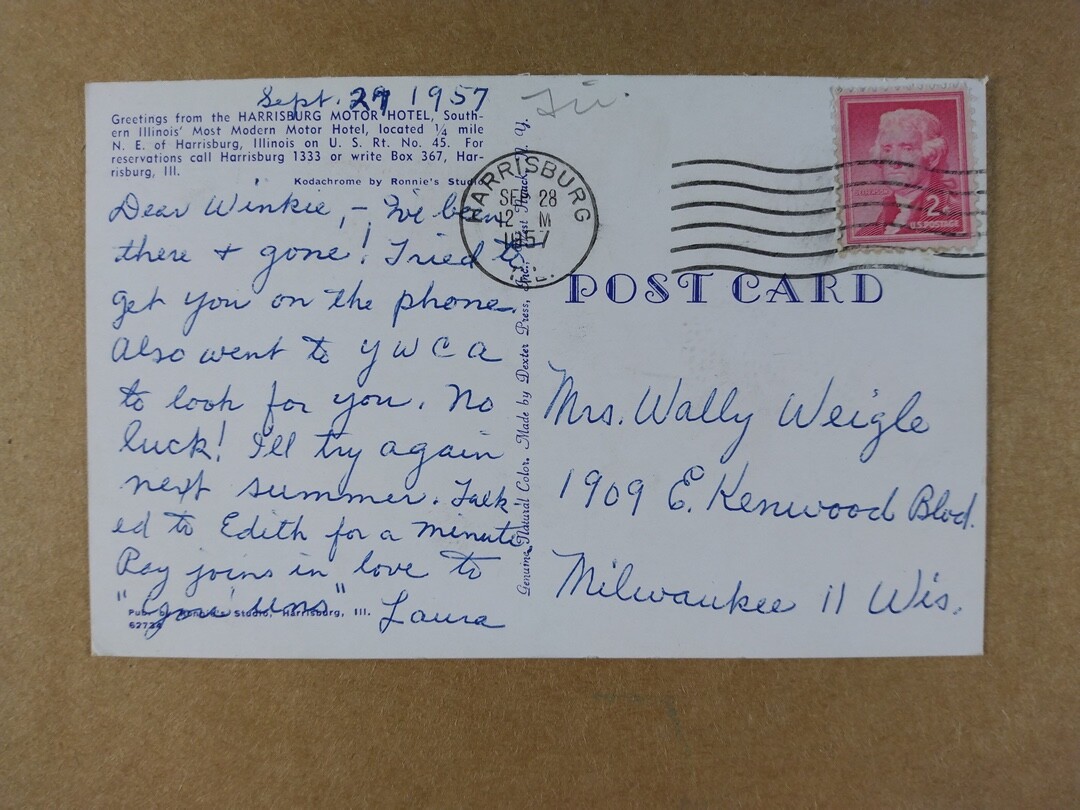 Sept. 27 1957
Greetings from the HARRISBURG MOTOR HOTEL, South-
ern Illinois' Most Modern Motor Hotel, located ¼ mile
N. E. of Harrisburg, Illinois on U. S. Rt. No. 45. For
reservations call Harrisburg 1333 or write Box 367, Har-
risburg, Ill.
Kodachrome by Ronnie's Studio
Dear Winkie, - I've been
there & gone! Tried to
get you on the phone.
Also went to YWCA
to look for you. No
luck! I'll try again
next summer. Talk
ed to Edith for a minute
Ray joins in love to
"you Uns" Laura
Pub. by Ronnie's Studio, Harrisburg, Ill.
Genuine Natural Color. Made by Dexter Press, Inc., West Nyack, N. Y.
HARRISBURG
SEP 28
12 M
1957
ILL.
2¢
U.S. POSTAGE
POST CARD
Mrs. Wally Weigle
1909 E. Kenwood Blvd.
Milwaukee 11 Wis.